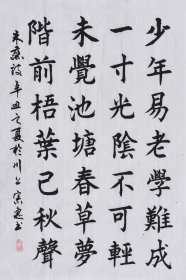 少年易老學難成
一寸光陰不可輕
未覺池塘春草夢
階前梧葉已秋聲
朱熹詩辛丑之夏於川上